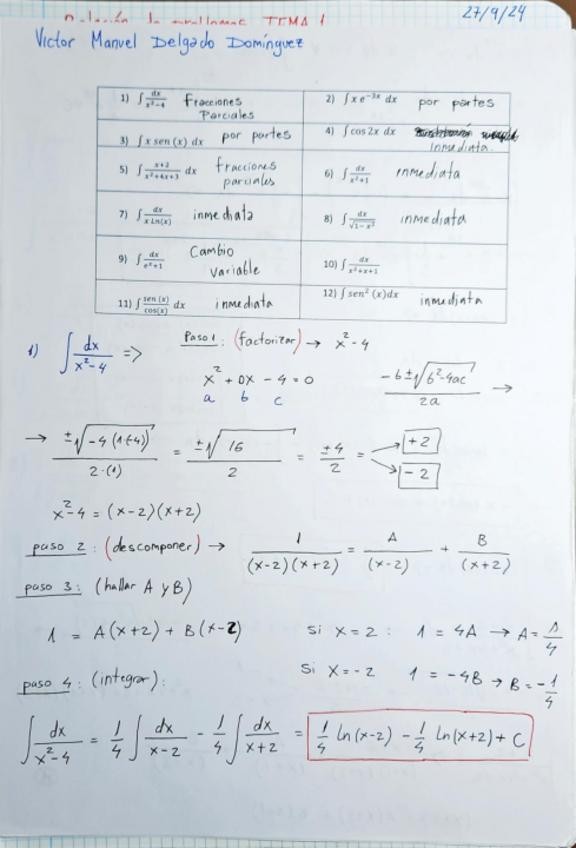 27/9/24
TEMA 1
Victor Manuel Delgado Domínguez
1) ∫ dx/(x²-4) Fracciones Parciales
2) ∫ x e^(-3x) dx por partes
3) ∫ x sen (x) dx por partes
4) ∫ cos 2x dx inmediata.
5) ∫ (x+2)/(x²+4x+3) dx fracciones parciales
6) ∫ dx/(x²+1) inmediata
7) ∫ dx/(x Ln(x)) inmediata
8) ∫ dx/√(1-x²) inmediata
9) ∫ dx/(e^x+1) Cambio variable
10) ∫ dx/(x²+x+1)
11) ∫ sen (x)/cos(x) dx inmediata
12) ∫ sen² (x)dx inmediata
1) ∫ dx/(x²-4) => Paso 1: (factorizar) → x²-4
x² + 0x - 4 = 0 (-b±√(b²-4ac))/2a →
a b c
→ ±√(-4(1·(-4)))/(2·(1)) = ±√16/2 = ±4/2 = +2
-2
x²-4 = (x-2)(x+2)
paso 2: (descomponer) → 1/((x-2)(x+2)) = A/(x-2) + B/(x+2)
paso 3: (hallar A y B)
1 = A(x+2) + B(x-2) si x=2: 1 = 4A → A = 1/4
si x=-2 1 = -4B → B = -1/4
paso 4: (integrar):
∫ dx/(x²-4) = 1/4 ∫ dx/(x-2) - 1/4 ∫ dx/(x+2) = 1/4 ln(x-2) - 1/4 ln(x+2) + C